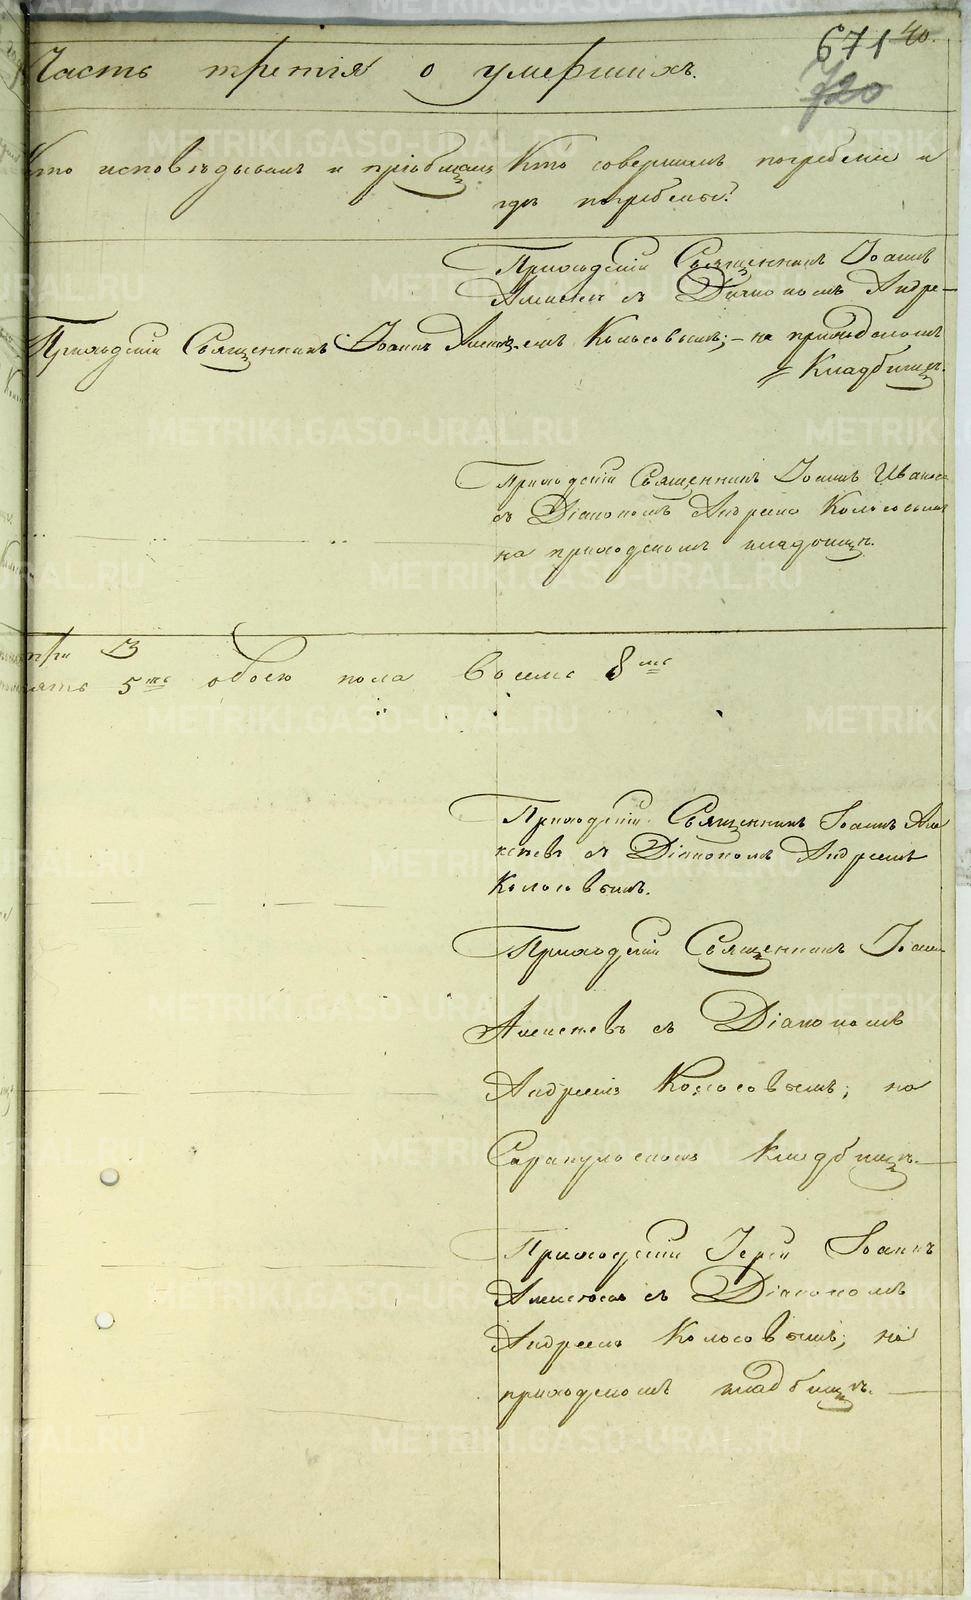 671 40.
720
Часть третія о умершихъ.
Кто исповѣдывалъ и пріобщалъ
Кто совершалъ погребеніе и
гдѣ погребены?
Приходскій Священникъ Іоаннъ
Алексѣевъ съ Діакономъ Андре-
Приходскій Священникъ Іоаннъ Алексѣевъ
емъ Колосовымъ; – на приходскомъ
Кладбищѣ.
Приходскій Священникъ Іоаннъ
съ Діакономъ Андреемъ Колосовымъ
на приходскомъ кладбищѣ.
три 3
пять 5ть обоего пола восемь 8мь
Приходскій Священникъ Іоаннъ Але
ксѣевъ съ Діакономъ Андреемъ
Колосовымъ.
Приходскій Священникъ Іоаннъ
Алексѣевъ съ Діакономъ
Андреемъ Колосовымъ; на
Сарапульскомъ Кладбищѣ.
Приходскій Іерей Іоаннъ
Алексѣевъ съ Діакономъ
Андреемъ Колосовымъ; на
приходскомъ кладбищѣ.
METRIKI.GASO-URAL.RU